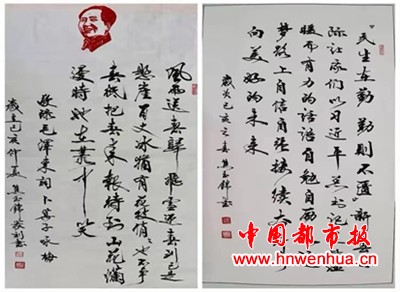 風雨送春歸 飛雪迎春到已是
懸崖百丈冰猶有花枝俏俏也不爭
春祗把春來報待到山花
漫時她在叢中笑
敬錄毛澤東詞卜算子咏梅
歲在己亥仲春
"民生在勤 勤则不匮"新年
际让我们以习近平总书记温
暖而有力的话语自勉自励
梦路上自信自强接续奋斗
向美好的未来
岁次己亥之春
中国都市报
www.hnwenhua.cn